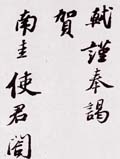 軾謹奉謁
賀
南圭使君閣